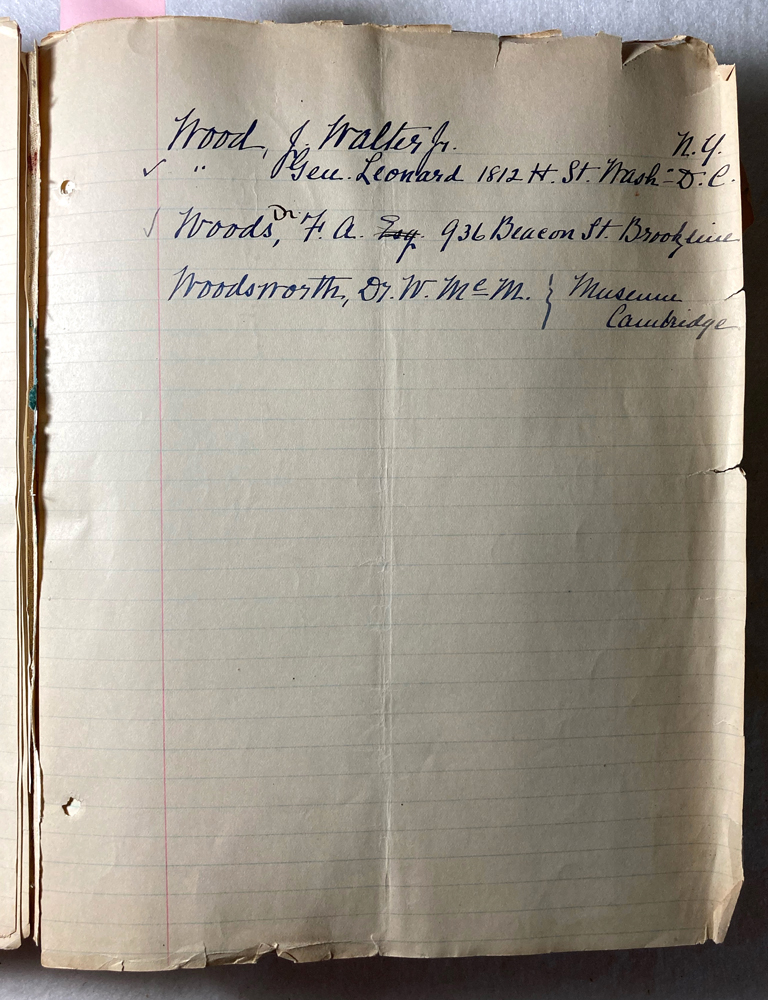 Wood, J. Walter Jr. N.Y.
✓ " Gen. Leonard 1812 H. St. Wash - D.C.
✓ Woods, Dr F. A. Esq. 936 Beacon St. Brookline
Woodsworth, Dr. W. Mc M. } Museum
Cambridge